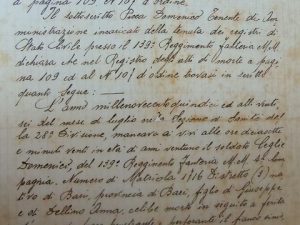 a pagina 109 ed al N 107 d'ordine.
Il sottoscritto Picca Domenico Tenente di Am-
ministrazione incaricato della tenuta dei registri di
Stato Civile presso il 139° Reggimento fanteria M.M.
dichiara che nel Registro degli atti di morte a pa-
gina 109 ed al N 107 d'ordine trovasi in scritto
quanto segue:
L'anno millenovecentoquindici ed alli venti
sei del mese di luglio nella Sezione di Sanità del
la 28ª Divisione, mancava ai vivi alle ore diciassette
e minuti venti in età di anni ventuno il soldato Ceglie
Domenico, del 139° Reggimento fanteria M.M.
pagina, Numero di Matricola 1716 Distretto na
tivo di Bari, provincia di Bari, figlio di Giuseppe
e di Bellino Anna, celibe morto in seguito a ferita
perforante il fianco sini